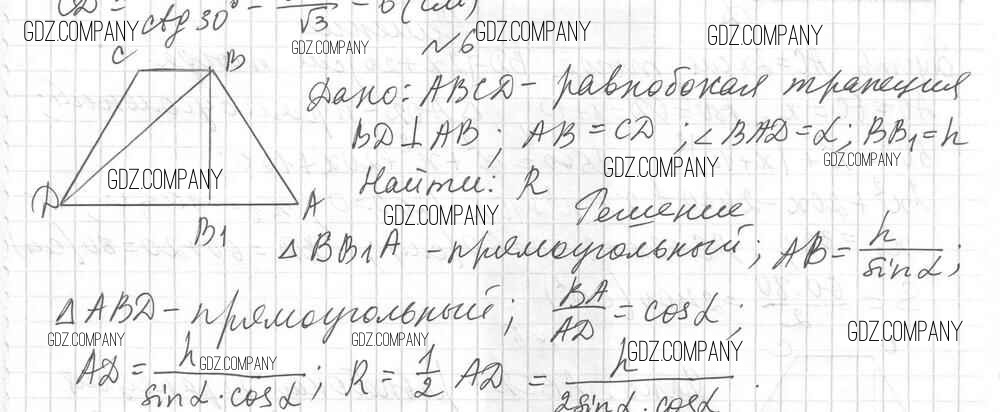 ctg 30° √3 = 6 (см)
GDZ.COMPANY GDZ.COMPANY GDZ.COMPANY GDZ.COMPANY
№6
C B
Дано: ABCD - равнобокая трапеция
BD ⊥ AB; AB = CD; ∠BAD = α; BB₁ = h
GDZ.COMPANY GDZ.COMPANY GDZ.COMPANY
Найти: R
D A
GDZ.COMPANY
Решение
B₁
△BB₁A - прямоугольный; AB = h / sin α;
△ABD - прямоугольный; BA / AD = cos α;
GDZ.COMPANY GDZ.COMPANY GDZ.COMPANY
AD = h / (sin α · cos α); R = 1/2 AD = h / (2 sin α · cos α).
GDZ.COMPANY GDZ.COMPANY